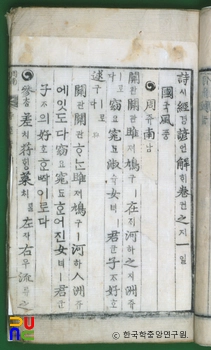 詩시經경諺언解해卷권之지一일
國국風풍
周쥬南남
關관關관雎져鳩구ㅣ在ᄌᆡ河하之지洲쥬ㅣ로다
窈요窕됴淑슉女녀ㅣ君군子ᄌᆞ好호
逑구ㅣ로다
關관關관ᄒᆞᄂᆞᆫ雎져鳩구ㅣ河하人洲쥬
에잇도다窈요窕됴ᄒᆞᆫ어진女녀ㅣ君군
子ᄌᆞ의好호ᄒᆞᆫᄧᅡᆨ이로다
參ᄎᆞᆷ差치荇ᄒᆡᆼ菜ᄎᆡ左자右우流류之지
ⓒ한국학중앙연구원